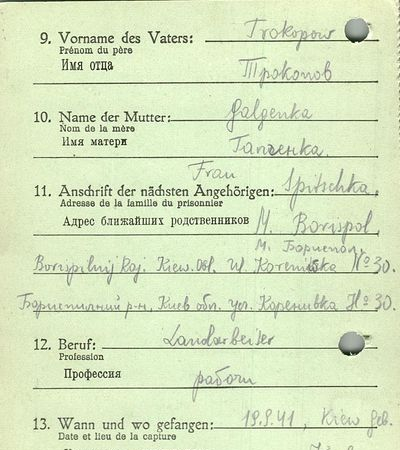 9. Vorname des Vaters: Trokopow
Prénom du père
Имя отца Трокопов
10. Name der Mutter: Galgenka
Nom de la mère
Имя матери Галгенка.
Frau
11. Anschrift der nächsten Angehörigen: Spitschka,
Adresse de la famille du prisonnier
Адрес ближайших родственников M. Borispol,
м. Бориспол,
Borispilnij Raj. Kiew. Obl. Ul. Koreniwka № 30.
Бориспилний р-н, Киев обл. ул. Коренивка № 30.
12. Beruf: Landarbeiter
Profession
Профессия работн
13. Wann und wo gefangen: 19.9.41, Kiew Geb.
Date et lieu de la capture